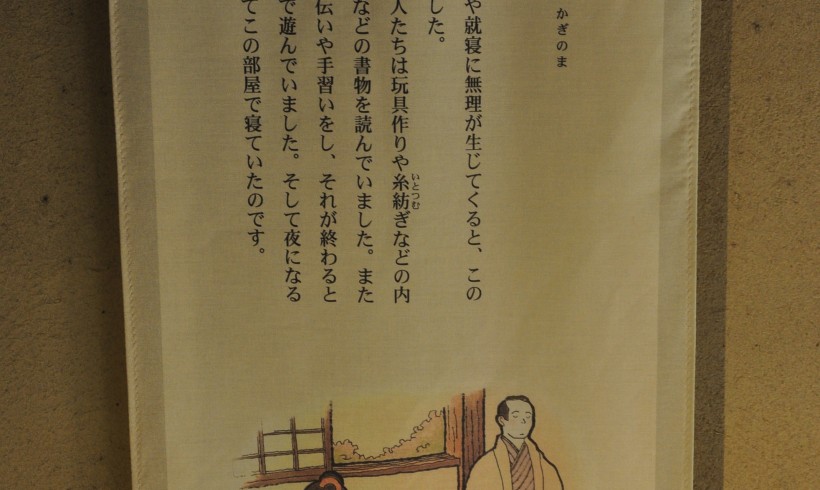 かぎのま
や就寝に無理が生じてくると、この
した。
人たちは玩具作りや糸紡ぎなどの内
いとつむ
などの書物を読んでいました。また
伝いや手習いをし、それが終わると
で遊んでいました。そして夜になる
てこの部屋で寝ていたのです。